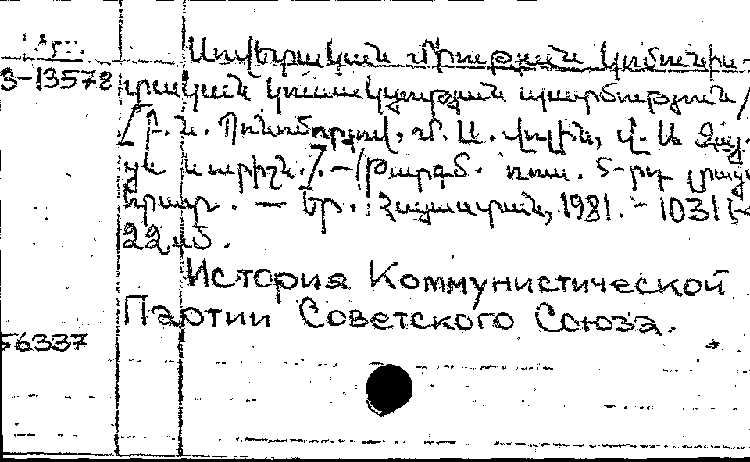 Սովետական Միության կոմունիս-
3-13578 տական կուսակցության պատմություն/
/Բ. Ն. Պոնոմարյով, Մ. Ս. Վոլին, Վ. Ս. Զայ-
ցև և ուրիշն./. - (Թարգմ. ռուս. 5-րդ լրաց
հրատ. — Եր.: Հայաստան, 1981. - 1031 է
22 սմ.
История Коммунистической
Партии Советского Союза.
56337